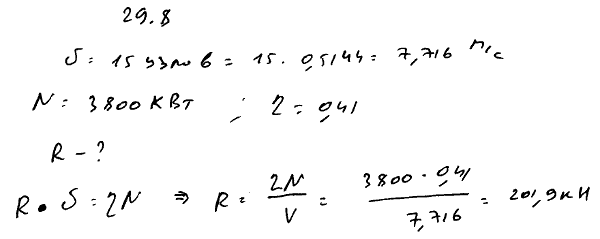 29.8
υ = 15 узлов = 15 · 0,5144 = 7,716 м/с
N = 3800 кВт ; η = 0,41
R - ?
R · υ = ηN ⇒ R = ηN / V = 3800 · 0,41 / 7,716 = 201,9 кН